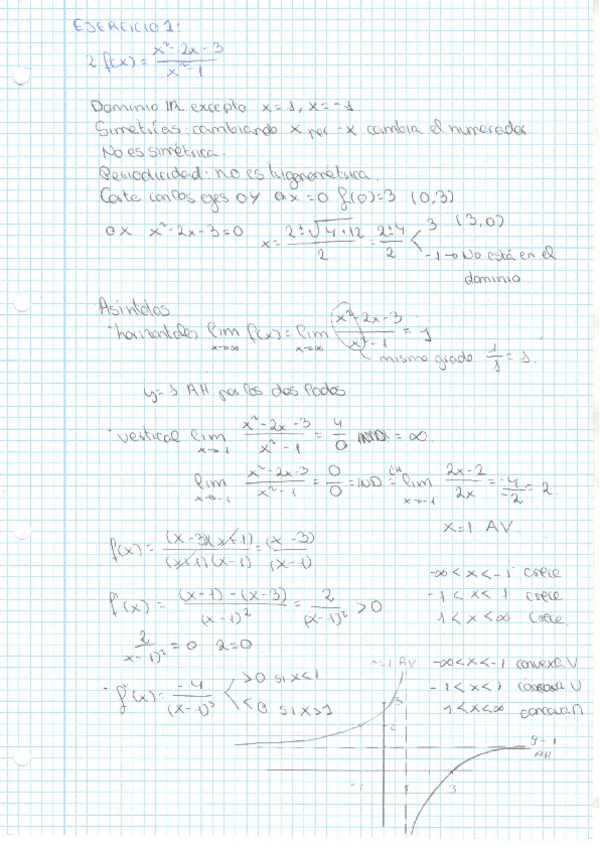 EJERCICIO 1:
2 f(x) = (x²-2x-3)/(x²-1)
Dominio ℝ excepto x=1, x=-1
Simetrías: cambiando x por -x cambia el numerador.
No es simétrica.
Periodicidad: no es trigonometrica.
Corte con los ejes OY x=0 f(0)=3 (0,3)
OX x²-2x-3=0 x = (2±√(4+12))/2 = (2±4)/2 < 3 (3,0)
-1 → No está en el
dominio
Asíntotas
- horizontales lim x→∞ f(x) = lim x→∞ (x²-2x-3)/(x²-1) = 1
mismo grado 1/1 = 1.
y=1 AH por los dos lados
- vertical lim x→1 (x²-2x-3)/(x²-1) = 4/0 = ∞.
lim x→-1 (x²-2x-3)/(x²-1) = 0/0 = IND = lim x→-1 (2x-2)/2x = -4/-2 = 2.
x=1 AV.
f(x) = (x-3)(x+1)/(x+1)(x-1) = (x-3)/(x-1)
-∞<x<-1 crece
f'(x) = ((x-1)-(x-3))/(x-1)² = 2/(x-1)² >0
-1<x<1 crece
1<x<∞ crece
2/(x-1)² = 0 2=0
- f''(x) = -4/(x-1)³ < >0 si x<1
<0 si x>1
-∞<x<-1 convexa U
-1<x<1 U
1<x<∞ concava ∩
x=1 AV
3
2
y=1
AH
-1 1 3